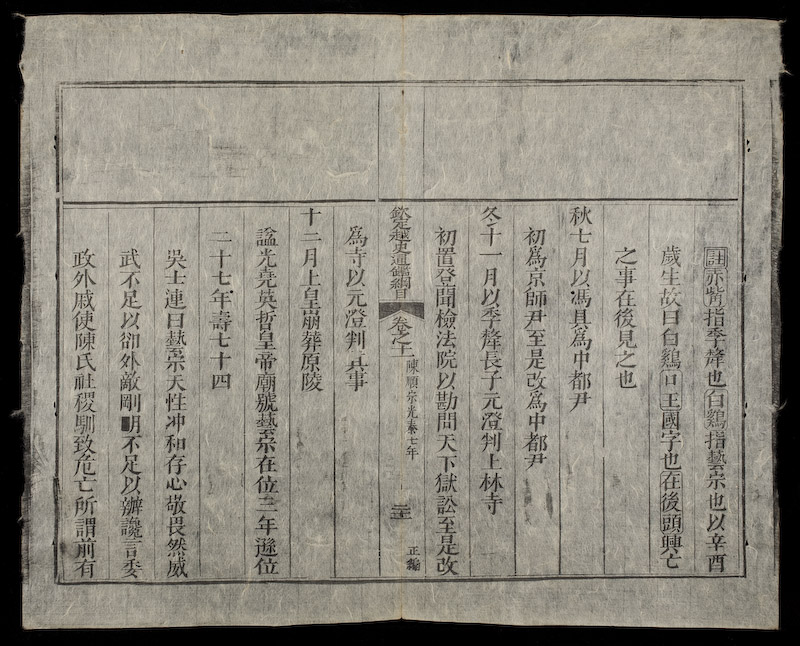 註赤觜指季犛也白鷄指藝宗也以辛酉
歲生故曰白鷄口王國字也在後頭興亡
之事在後見之也
秋七月以馮具爲中都尹
初爲京師尹至是改爲中都尹
冬十一月以季犛長子元澄判上林寺
初置登聞檢法院以勘問天下獄訟至是改
欽定越史通鑑綱目
卷之十一
陳順宗光泰七年
二十三
正編
爲寺以元澄判其事
十二月上皇崩葬原陵
諡光堯英哲皇帝廟號藝宗在位三年遜位
二十七年壽七十四
吳士連曰藝宗天性冲和存心敬畏然威
武不足以卻外敵剛明不足以辨讒言委
政外戚使陳氏社稷馴致危亡所謂前有